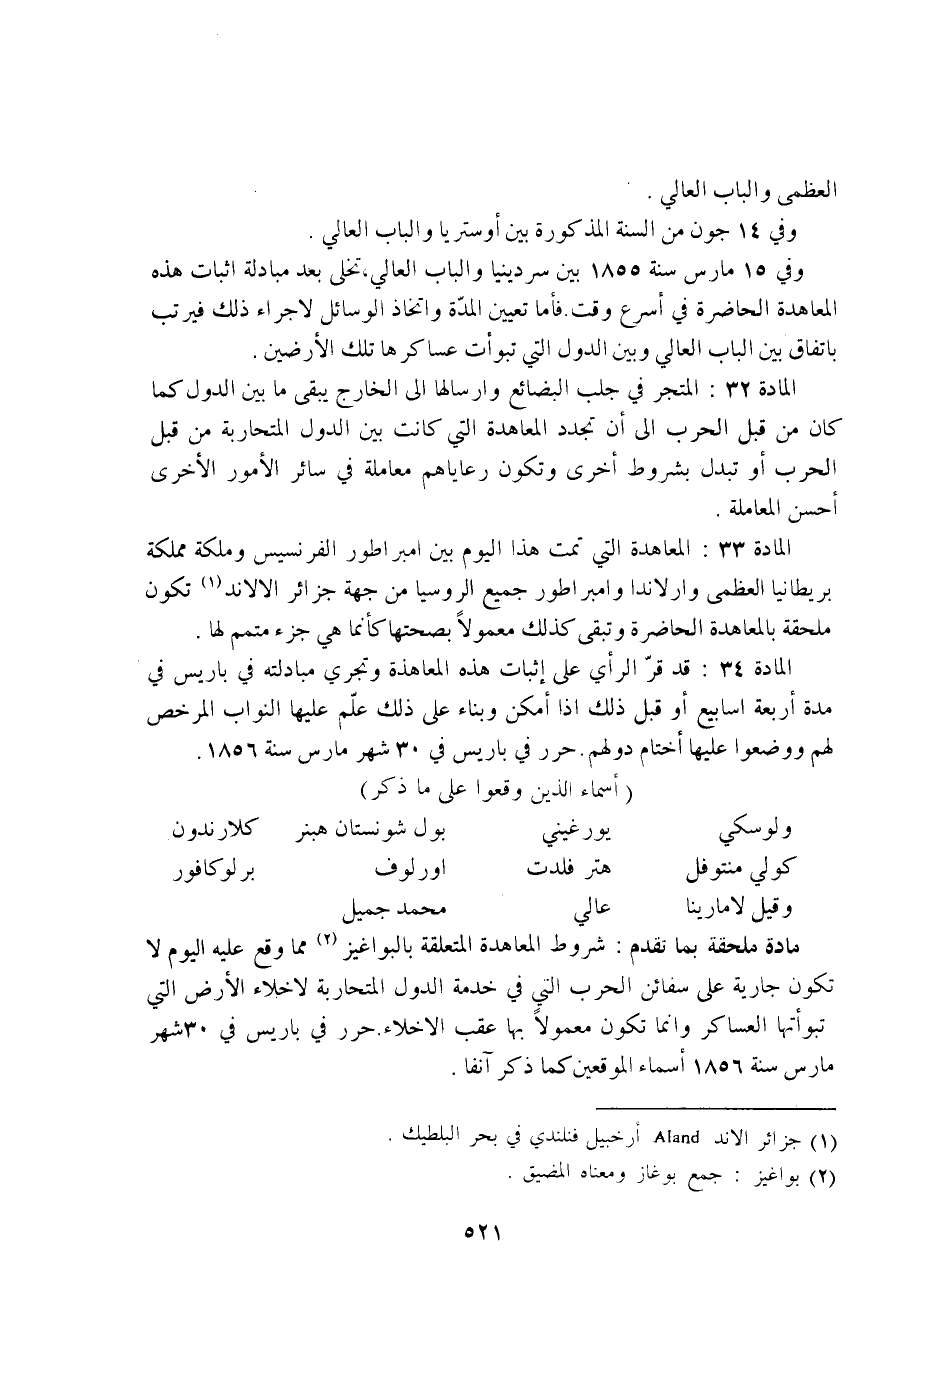 العظمى والباب العالي .
وفي ١٤ جون من السنة المذكورة بين أوستريا والباب العالي .
وفي ١٥ مارس سنة ١٨٥٥ بين سردينيا والباب العالي، تخلى بعد مبادلة اثبات هذه
المعاهدة الحاضرة في أسرع وقت. فأما تعيين المدّة واتخاذ الوسائل لاجراء ذلك فيرتب
باتفاق بين الباب العالي وبين الدول التي تبوأت عساكرها تلك الأرضين .
المادة ٣٢ : المتجر في جلب البضائع وارسالها الى الخارج يبقى ما بين الدول كما
كان من قبل الحرب الى أن تجدد المعاهدة التي كانت بين الدول المتحاربة من قبل
الحرب أو تبدل بشروط أخرى وتكون رعاياهم معاملة في سائر الأمور الأخرى
أحسن المعاملة .
المادة ٣٣ : المعاهدة التي تمت هذا اليوم بين امبراطور الفرنسيس وملكة مملكة
بريطانيا العظمى وارلاندا وامبراطور جميع الروسيا من جهة جزائر الالاند(١) تكون
ملحقة بالمعاهدة الحاضرة وتبقى كذلك معمولاً بصحتها كأنما هي جزء متمم لها .
المادة ٣٤ : قد قرّ الرأي على إثبات هذه المعاهذة وتجري مبادلته في باريس في
مدة أربعة اسابيع أو قبل ذلك اذا أمكن وبناء على ذلك علّم عليها النواب المرخص
لهم ووضعوا عليها أختام دولهم. حرر في باريس في ٣٠ شهر مارس سنة ١٨٥٦ .
( أسماء الذين وقعوا على ما ذكر )
ولوسكي يورغيني بول شونستان هبنر كلارندون
كولي منتوفل هتر فلدت اورلوف برلوكافور
وقيل لامارينا عالي محمد جميل
مادة ملحقة بما تقدم : شروط المعاهدة المتعلقة بالبواغيز(٢) مما وقع عليه اليوم لا
تكون جارية على سفائن الحرب التي في خدمة الدول المتحاربة لاخلاء الأرض التي
تبوأتها العساكر وانما تكون معمولاً بها عقب الاخلاء. حرر في باريس في ٣٠ شهر
مارس سنة ١٨٥٦ أسماء الموقعين كما ذكر آنفا .
(١) جزائر الاند Aland أرخبيل فنلندي في بحر البلطيك .
(٢) بواغيز : جمع بوغاز ومعناه المضيق .
٥٢١